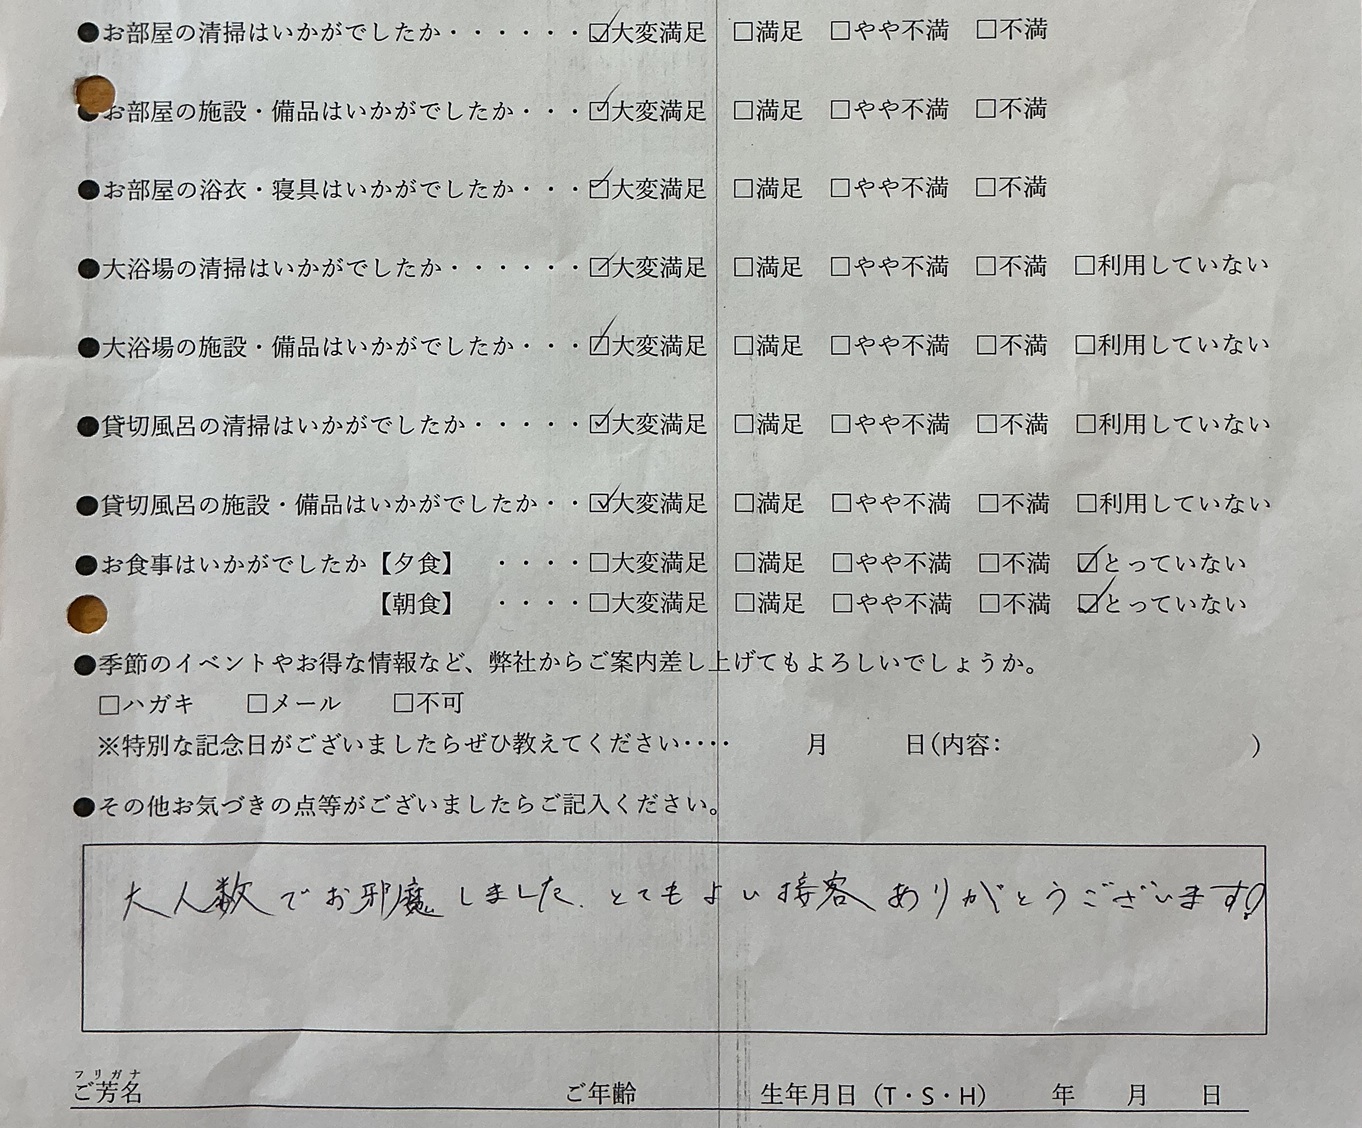 ●お部屋の清掃はいかがでしたか・・・・・・☑大変満足 □満足 □やや不満 □不満
●お部屋の施設・備品はいかがでしたか・・・☑大変満足 □満足 □やや不満 □不満
●お部屋の浴衣・寝具はいかがでしたか・・・☑大変満足 □満足 □やや不満 □不満
●大浴場の清掃はいかがでしたか・・・・・・☑大変満足 □満足 □やや不満 □不満 □利用していない
●大浴場の施設・備品はいかがでしたか・・・☑大変満足 □満足 □やや不満 □不満 □利用していない
●貸切風呂の清掃はいかがでしたか・・・・・☑大変満足 □満足 □やや不満 □不満 □利用していない
●貸切風呂の施設・備品はいかがでしたか・・☑大変満足 □満足 □やや不満 □不満 □利用していない
●お食事はいかがでしたか【夕食】 ・・・・□大変満足 □満足 □やや不満 □不満 ☑とっていない
【朝食】 ・・・・□大変満足 □満足 □やや不満 □不満 ☑とっていない
●季節のイベントやお得な情報など、弊社からご案内差し上げてもよろしいでしょうか。
□ハガキ □メール □不可
※特別な記念日がございましたらぜひ教えてください‥‥ 月 日(内容: )
●その他お気づきの点等がございましたらご記入ください。
大人数でお邪魔しました。とてもよい接客ありがとうございます!
フリガナ
ご芳名 ご年齢 生年月日（T・S・H） 年 月 日